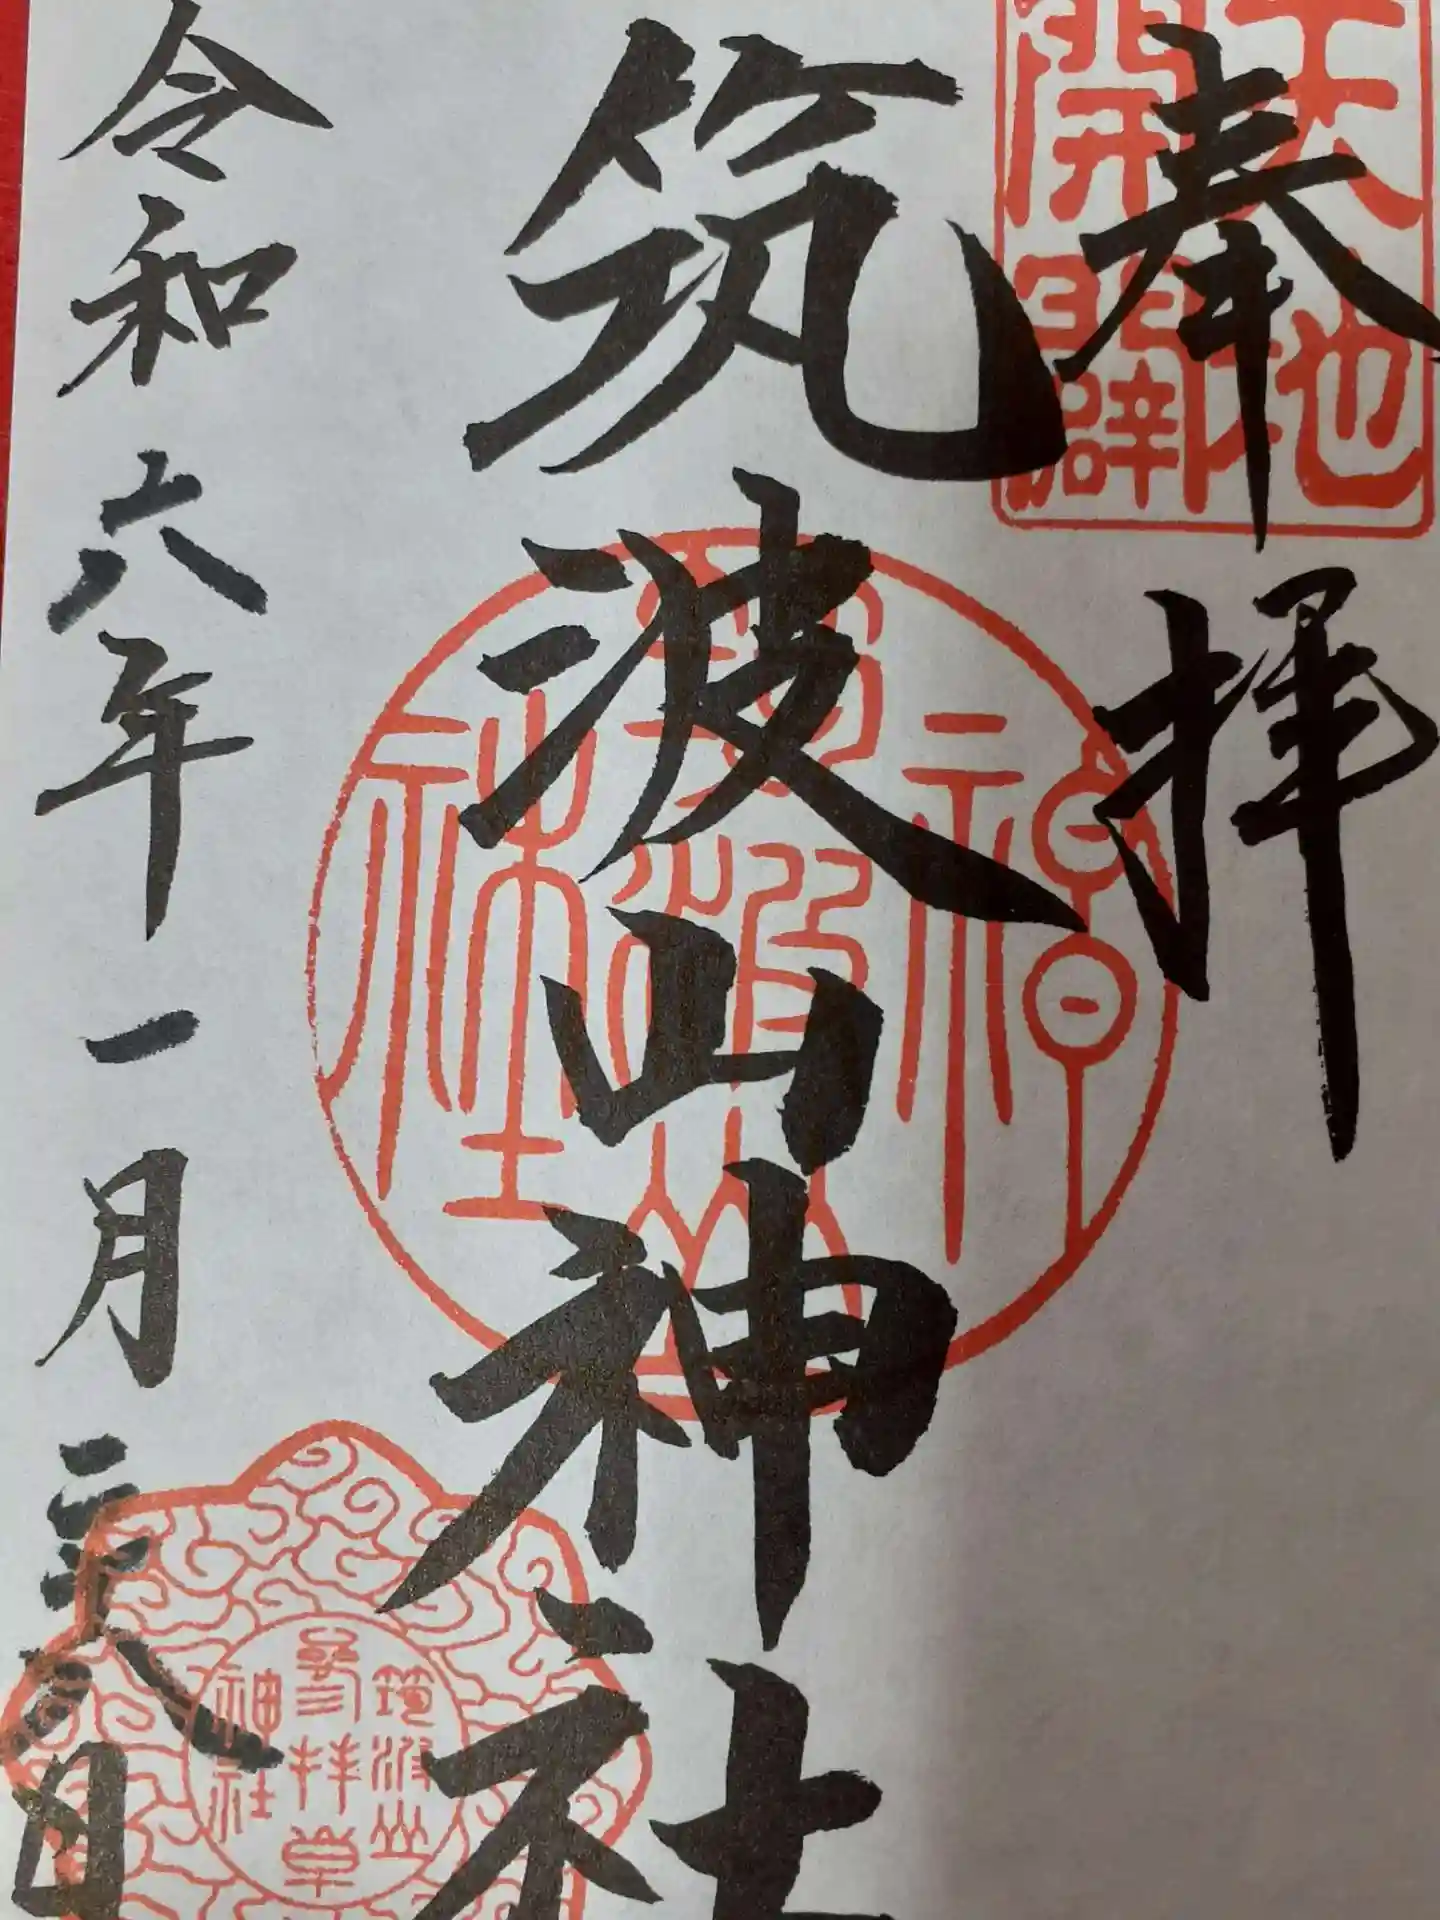 奉拝
天地
開闢
筑波山神社
神
筑波山
社
令和六年一月二十八日
筑波山
参拝章
神社